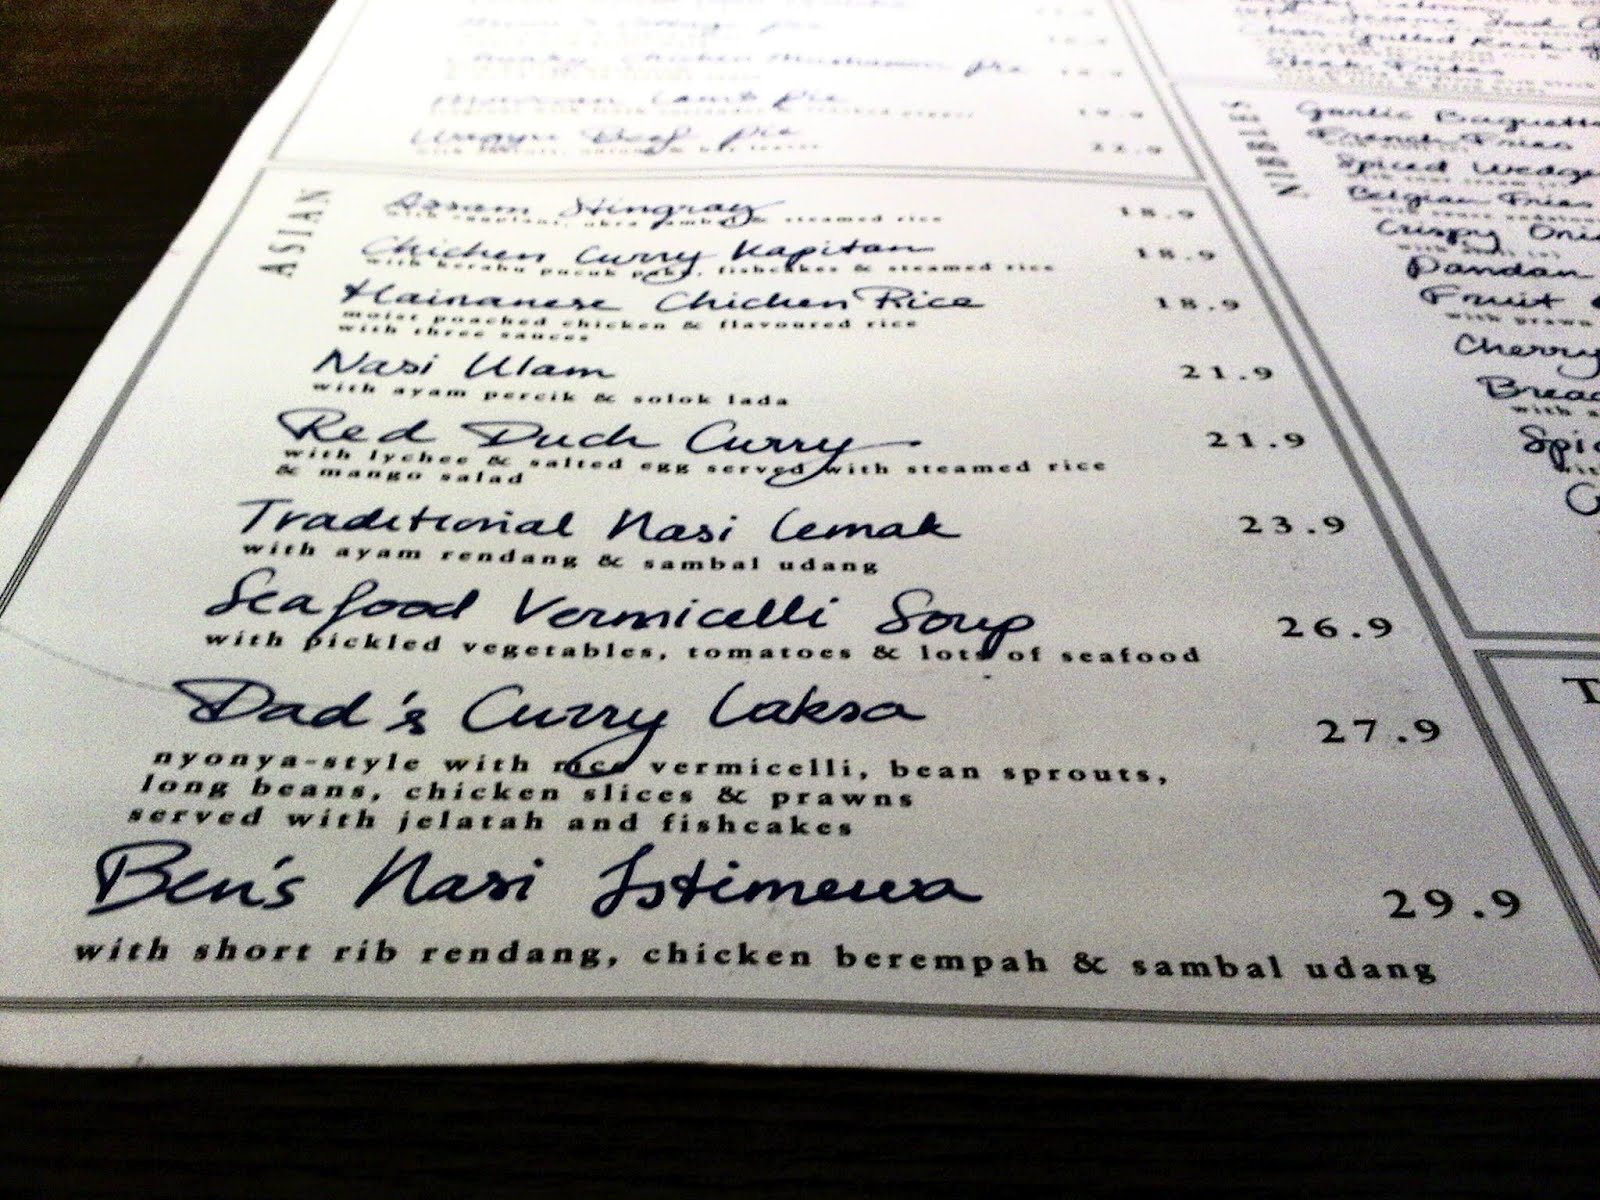 Chicken Mushroom Pie
Lamb Pie
19.9
Wagyu Beef Pie
22.9
ASIAN
Assam Stingray 18.9
steamed rice
Chicken Curry Kapitan 18.9
with kerabu pucuk paku, fishcakes & steamed rice
Hainanese Chicken Rice 18.9
moist poached chicken & flavoured rice
with three sauces
Nasi Ulam 21.9
with ayam percik & solok lada
Red Duck Curry 21.9
with lychee & salted egg served with steamed rice
& mango salad
Traditional Nasi Lemak 23.9
with ayam rendang & sambal udang
Seafood Vermicelli Soup 26.9
with pickled vegetables, tomatoes & lots of seafood
Dad's Curry Laksa 27.9
nyonya-style with rice vermicelli, bean sprouts,
long beans, chicken slices & prawns
served with jelatah and fishcakes
Ben's Nasi Istimewa 29.9
with short rib rendang, chicken berempah & sambal udang
Steak Frites
Garlic Baguette
French Fries
Spiced Wedge
Belgian Fries
Crispy Oni
Pandan
Fruit
with prawn
Cherry
Bread
Spic
T